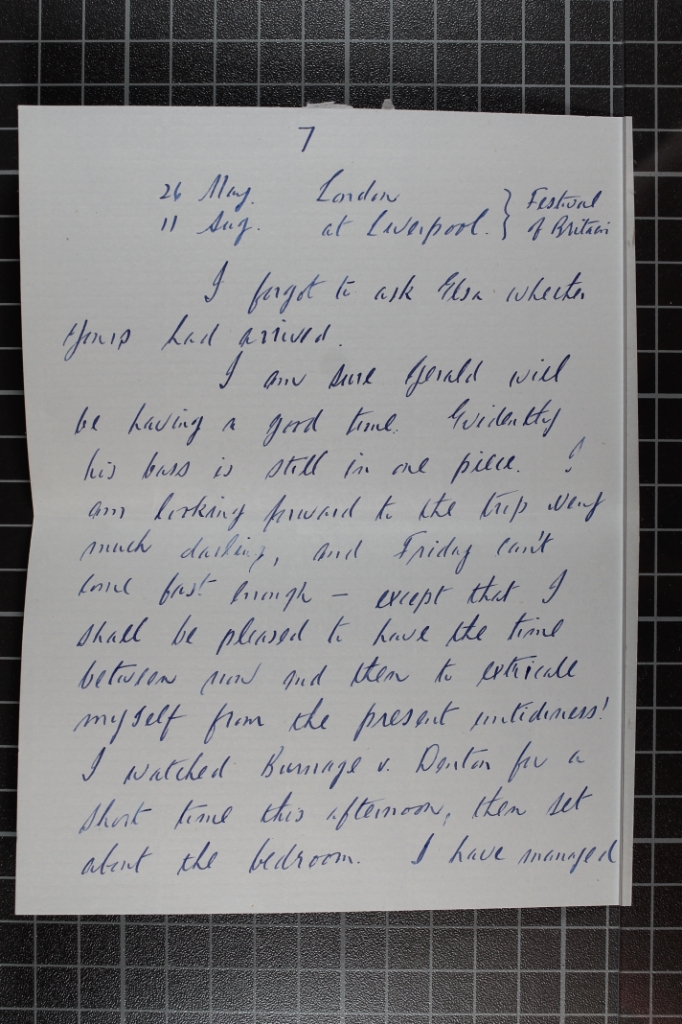 7
26 May. London } Festival
11 Aug. at Liverpool. } of Britain
I forgot to ask Elsa whether
yours had arrived.
I am sure Gerald will
be having a good time. Evidently
his bass is still in one piece. I
am looking forward to the trip very
much darling, and Friday can't
come fast enough – except that I
shall be pleased to have the time
between now and then to extricate
myself from the present untidiness!
I watched Burnage v. Denton for a
short time this afternoon, then set
about the bedroom. I have managed